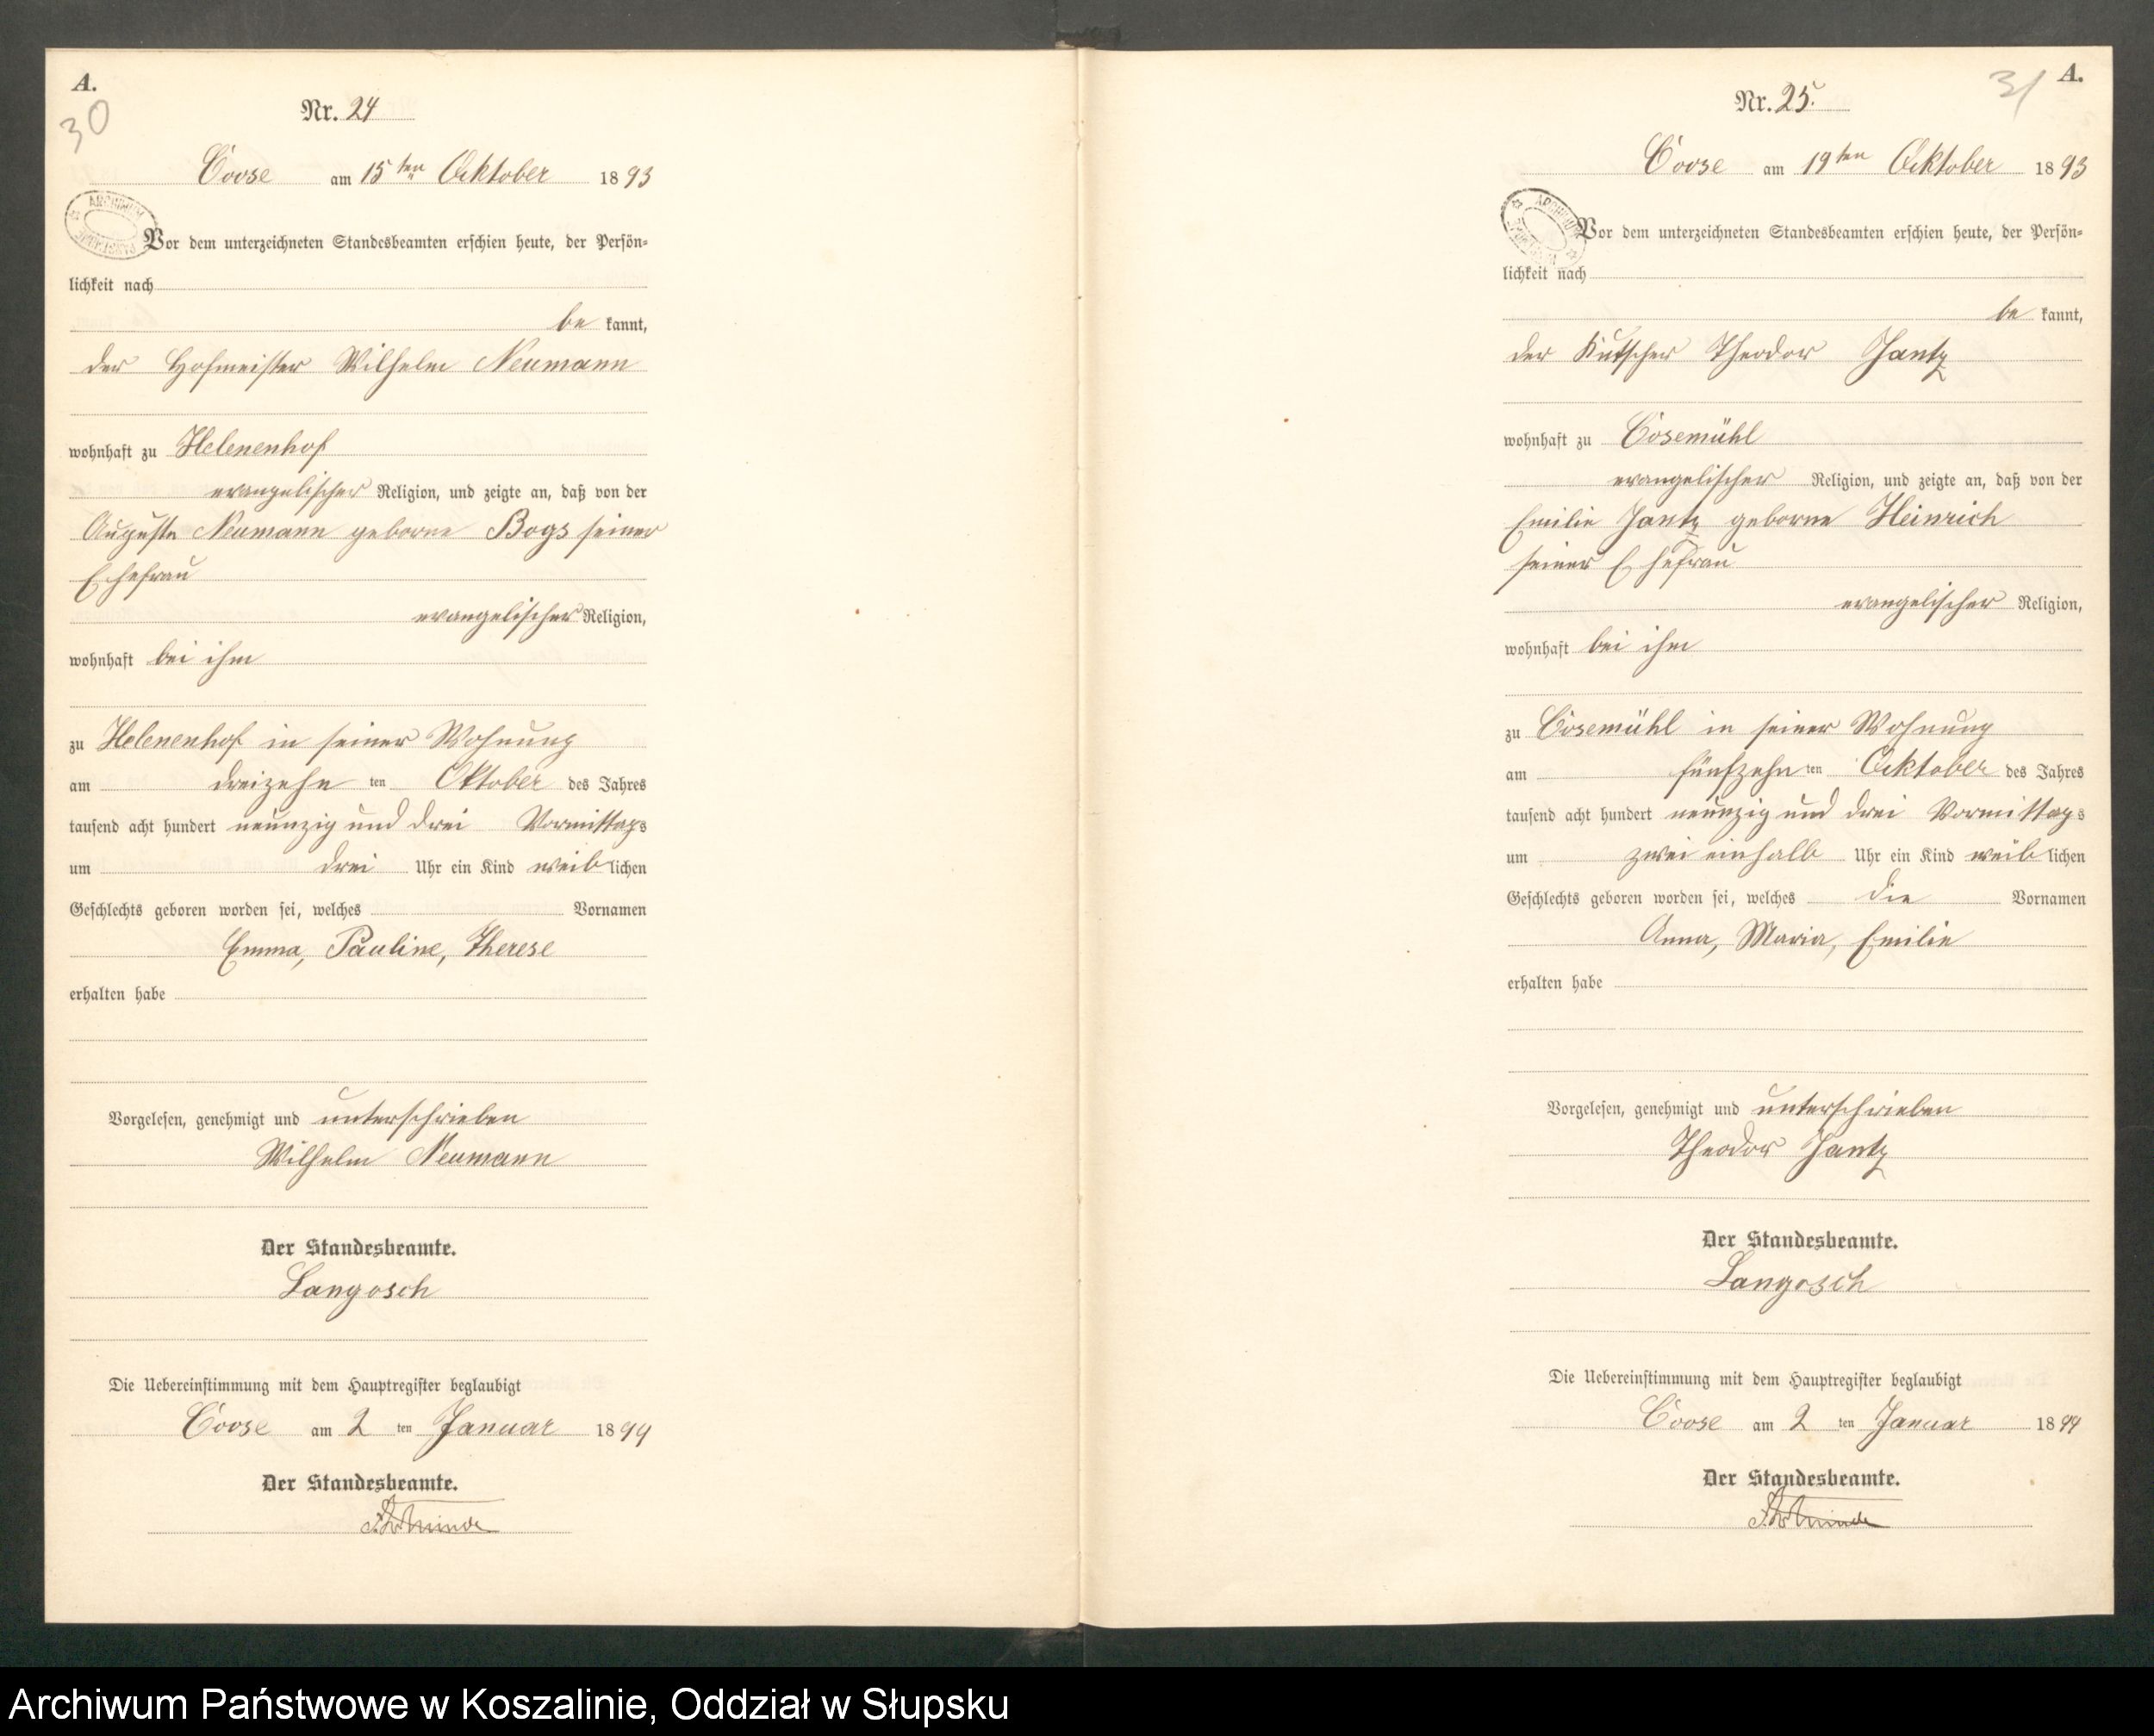 A.
30
Nr. 24
Coose am 15ten Oktober 1893
ARCHIWUM
Vor dem unterzeichneten Standesbeamten erschien heute, der Persön=
lichkeit nach
be kannt,
der Hofmeister Wilhelm Neumann
wohnhaft zu Helenenhof
evangelischer Religion, und zeigte an, daß von der
Auguste Neumann geborne Bogs seiner
Ehefrau
evangelischer Religion,
wohnhaft bei ihm
zu Helenenhof in seiner Wohnung
am dreizehn ten Oktober des Jahres
tausend acht hundert neunzig und drei Vormittags
um drei Uhr ein Kind weiblichen
Geschlechts geboren worden sei, welches Vornamen
Emma, Pauline, Therese
erhalten habe
Vorgelesen, genehmigt und unterschrieben
Wilhelm Neumann
Der Standesbeamte.
Langosch
Die Uebereinstimmung mit dem Hauptregister beglaubigt
Coose am 2 ten Januar 1894
Der Standesbeamte.
A.
31
Nr. 25.
Coose am 19ten Oktober 1893
ARCHIWUM
Vor dem unterzeichneten Standesbeamten erschien heute, der Persön=
lichkeit nach
be kannt,
der Kutscher Theodor Jantz
wohnhaft zu Cosemühl
evangelischer Religion, und zeigte an, daß von der
Emilie Jantz geborne Heinrich
seiner Ehefrau
evangelischer Religion,
wohnhaft bei ihm
zu Cosemühl in seiner Wohnung
am fünfzehn ten Oktober des Jahres
tausend acht hundert neunzig und drei Vormittags
um zwei einhalb Uhr ein Kind weiblichen
Geschlechts geboren worden sei, welches die Vornamen
Anna, Maria, Emilie
erhalten habe
Vorgelesen, genehmigt und unterschrieben
Theodor Jantz
Der Standesbeamte.
Langosch
Die Uebereinstimmung mit dem Hauptregister beglaubigt
Coose am 2 ten Januar 1894
Der Standesbeamte.
Archiwum Państwowe w Koszalinie, Oddział w Słupsku